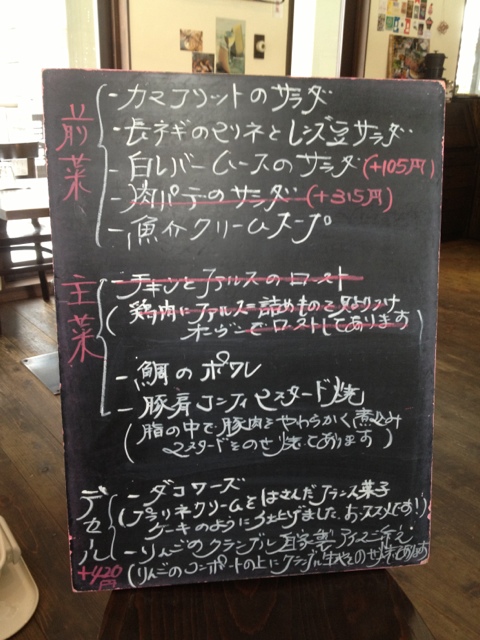 前菜
- カマフリットのサラダ
- 長ネギのテリネとレンズ豆サラダ
- 白レバームースのサラダ (+105円)
- 肉パテのサラダ (+315円)
- 魚介クリームスープ
主菜
- チキンとファルスのロースト
(鶏肉にファルス=詰めもので はりつけ
オーヴンでローストしてあります)
- 鯛のポワレ
- 豚肩コンフィマスタード焼
(脂の中で豚肉をやわらかく煮込み
マスタードをのせ焼いてあります)
デセール
+420円
- ダコワーズ
(プラリネクリームをはさんだフランス菓子
ケーキのように仕上げました。おススメです!)
- りんごのクランブル 自家製アイス添え
(りんごのコンポートの上にクランブル生地をのせ焼きあげます